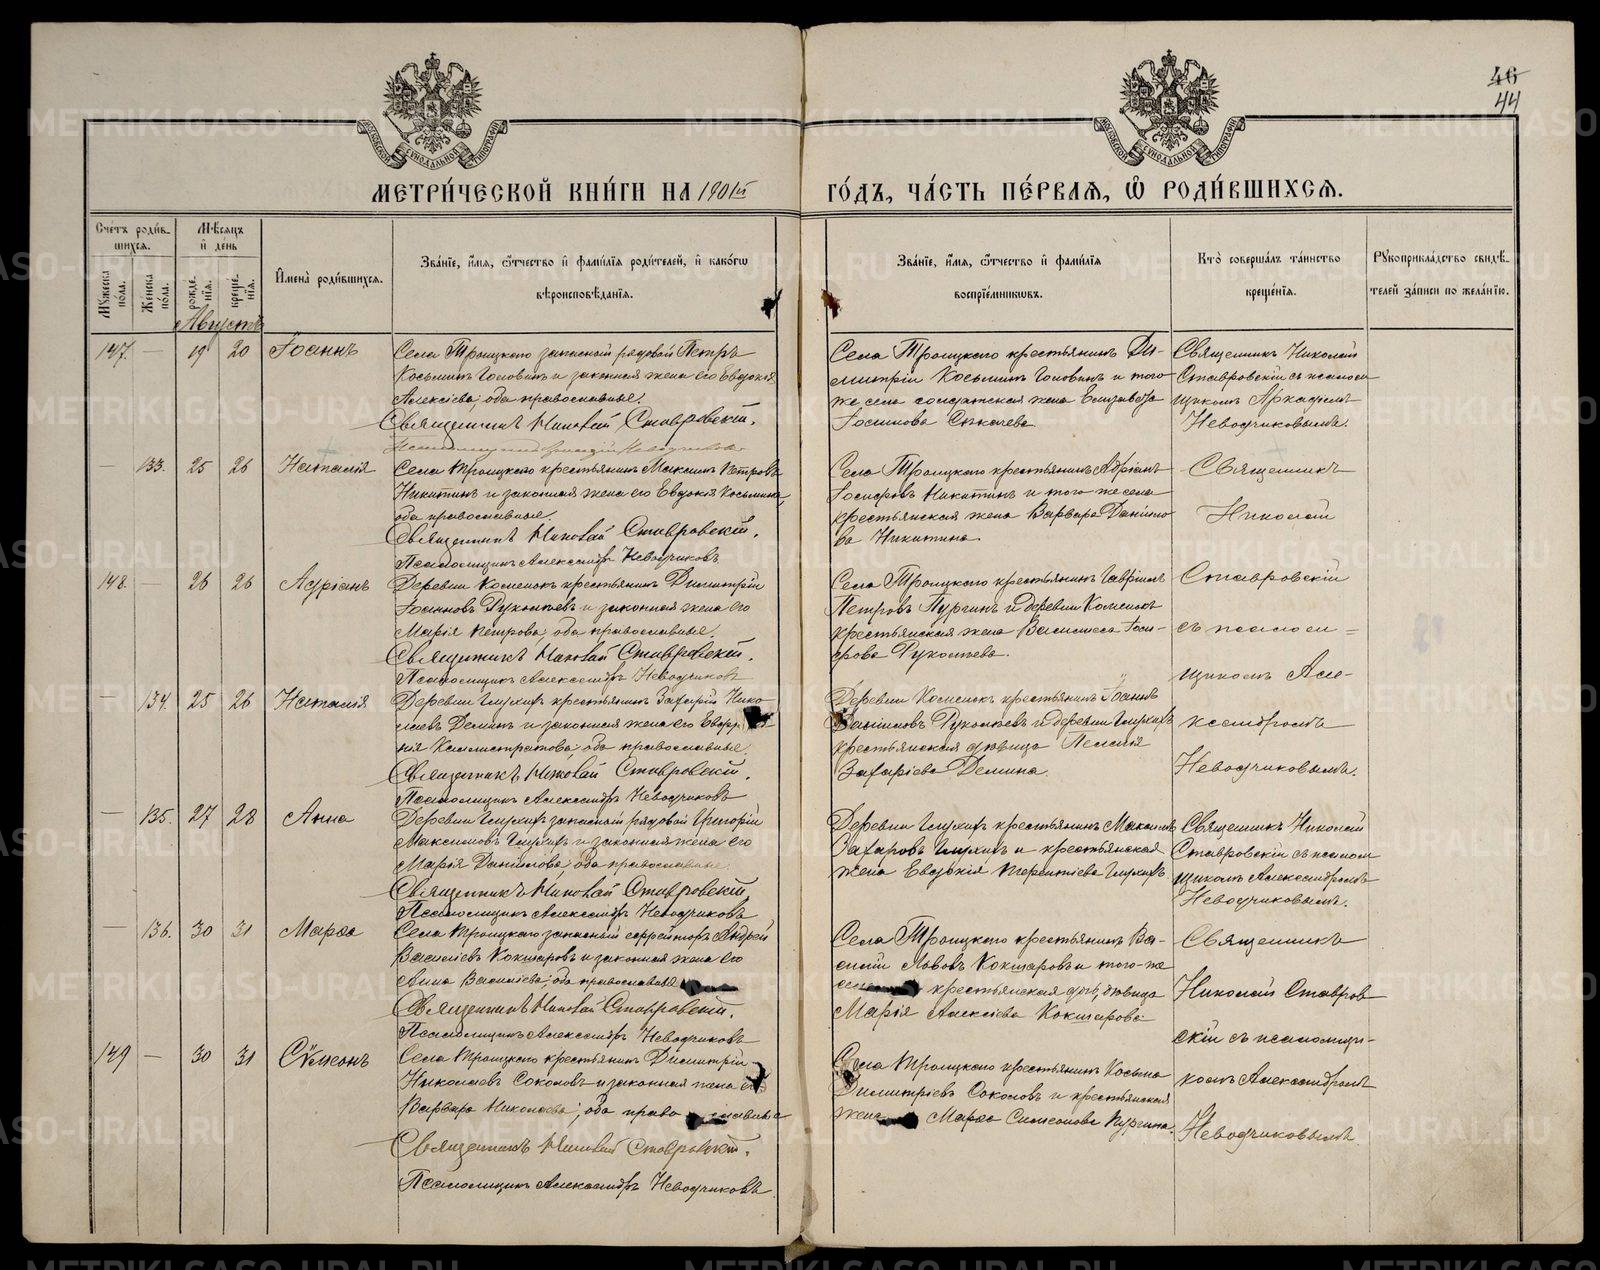 46
44
МОСКОВСКОЙ СѴНОДАЛЬНОЙ ТИПОГРАФІИ
МОСКОВСКОЙ СѴНОДАЛЬНОЙ ТИПОГРАФІИ
МЕТРИ́ЧЕСКОЙ КНИ́ГИ НА 1901й
ГО́ДЪ, ЧА́СТЬ ПЕ́РВАѦ, Ѡ РОДИ́ВШИХСѦ.
Сче́тъ роди́в-
шихсѧ.
Мꙋжеска по́ла.
Же́нска по́ла.
Мѣ́сѧцъ
и̂ де́нь
рожде́-нїѧ.
креще́-нїѧ.
И̂мена̀ роди́вшихсѧ.
Зва́нїе, и́мѧ, ѻ́тчество и̂ фами́лїѧ роди́телей, и̂ како́гѡ
вѣроисповѣ́данїѧ.
Зва́нїе, и́мѧ, ѻ́тчество и̂ фами́лїѧ
воспрїе́мникѡвъ.
Кто̀ соверша́лъ та́инство
креще́нїѧ.
Рꙋкоприкла́дство свидѣ́-
телей за́писи по жела́нїю.
Августъ
147. — 19 20 Іоаннъ
Села Троицкаго запасный рядовой Петръ
Косьминъ Головинъ и законная жена его Евдокія
Алексіева, оба православные.
Священникъ Николай Ставровскій.
Села Троицкаго крестьянинъ Ди-
митрій Косьминъ Головинъ и того
же села солдатская жена Елизавета
Священникъ Николай
Ставровскій съ псалом
щикомъ Аркадіемъ
Неводчиковымъ.
— 133. 25 26 Наталія
Села Троицкаго крестьянинъ Максимъ Петровъ
Никитинъ и законная жена его Евдокія Косьмина,
оба православные.
Священникъ Николай Ставровскій.
Псаломщикъ Александръ Неводчиковъ
Села Троицкаго крестьянинъ Адріанъ
Іосифовъ Никитинъ и того же села
крестьянская жена Варвара Данiило-
ва Никитина.
Священникъ
Николай
148. — 26 26 Адріанъ
Деревни крестьянинъ Димитрій
Іоанновъ Рукомѣевъ и законная жена его
Марія Петрова, оба православные.
Священникъ Николай Ставровскій.
Псаломщикъ Александръ Неводчиковъ
Села Троицкаго крестьянинъ Гавріилъ
Петровъ Пургинъ и деревни
крестьянская жена Василисса Іоси-
фова
Ставровскій
съ псалом=
щикомъ Але-
— 134. 25 26 Наталія
Деревни крестьянинъ Захарій Нико-
лаевъ Деминъ и законная жена его
нія Каллистратова, оба православные.
Священникъ Николай Ставровскій.
Псаломщикъ Александръ Неводчиковъ
Деревни крестьянинъ Іоаннъ
крестьянская дѣвица Пелагія
Захаріева Демина.
ксандромъ
Неводчиковымъ.
— 135. 27 28 Анна
Деревни запасный рядовой Григорій
Максимовъ и законная жена его
Марія Данiилова, оба православные.
Священникъ Николай Ставровскій
Псаломщикъ Александръ Неводчиковъ
Деревни крестьянинъ Максимъ
и крестьянская
жена Евдокія Терентіева
Священникъ Николай
Ставровскій съ псалом
щикомъ Александромъ
Неводчиковымъ.
— 136. 30 31 Марѳа
Села Троицкаго запасный ефрейторъ Андрей
Василіевъ Кокшаровъ и законная жена его
Анна Василіева, оба православные
Священникъ Николай Ставровскій.
Псаломщикъ Александръ Неводчиковъ
Села Троицкаго крестьянинъ Ва-
силій Львовъ Кокшаровъ и того-же
села крестьянская дочь, дѣвица
Марія Алексіева Кокшарова
Священникъ
Николай Ставров
скій съ псаломщи-
149 — 30 31 Сѵмеонъ
Села Троицкаго крестьянинъ Димитрій
Николаевъ Соколовъ и законная жена его
Варвара Николаева, оба православные
Священникъ Николай Ставровскій.
Псаломщикъ Александръ Неводчиковъ
Села Троицкаго крестьянинъ Косьма
Димитріевъ Соколовъ и крестьянская
жена Марѳа Симеонова Пургина.
комъ Александромъ
Неводчиковымъ.
METRIKI.GASO-URAL.RU